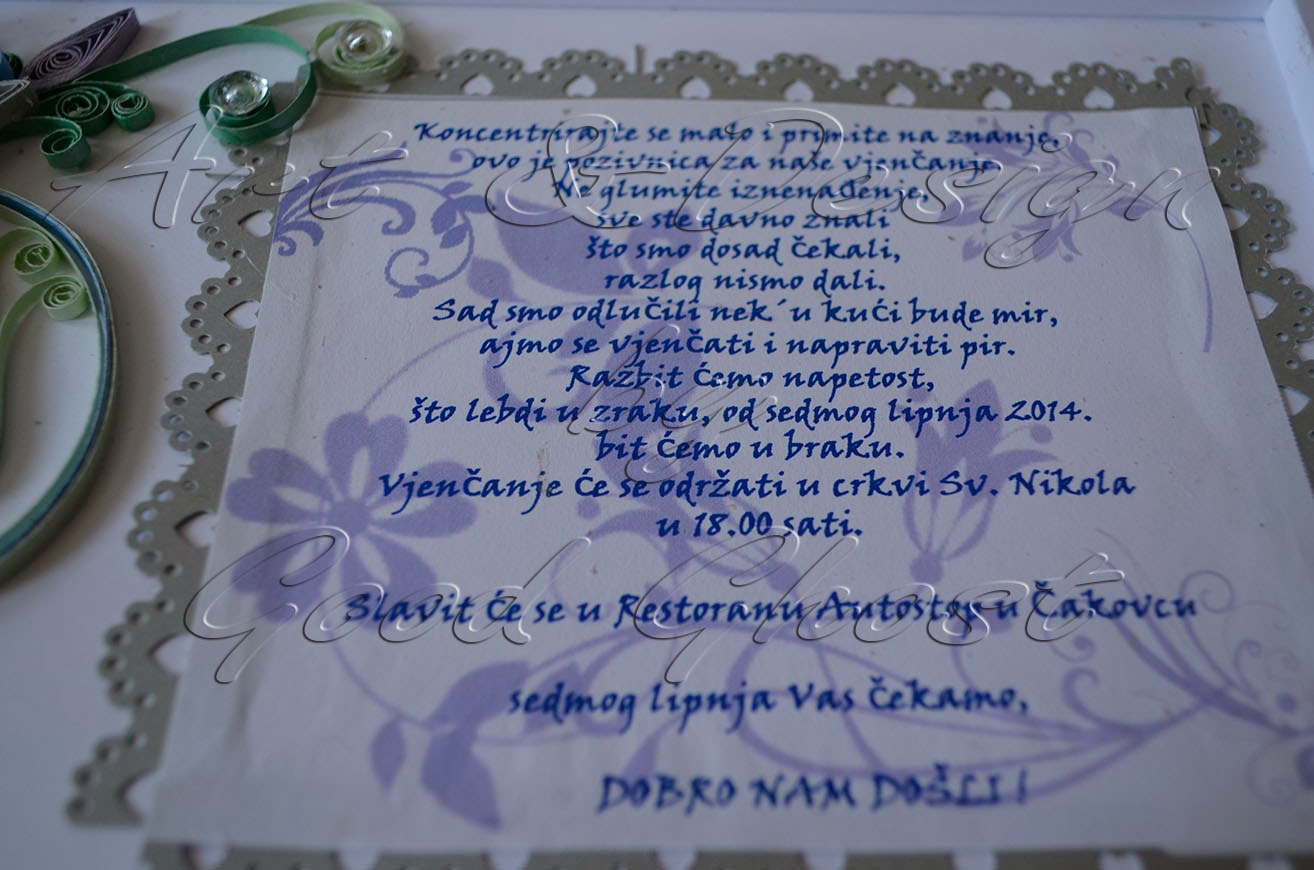 Koncentrirajte se malo i primite na znanje,
ovo je pozivnica za naše vjenčanje.
Ne glumite iznenađenje,
sve ste davno znali
što smo dosad čekali,
razlog nismo dali.
Sad smo odlučili nek´u kući bude mir,
ajmo se vjenčati i napraviti pir.
Razbit ćemo napetost,
što lebdi u zraku, od sedmog lipnja 2014.
bit ćemo u braku.
Vjenčanje će se održati u crkvi Sv. Nikola
u 18.00 sati.
Slavit će se u Restoranu Autostop u Čakovcu
sedmog lipnja Vas čekamo,
DOBRO NAM DOŠLI!
Art & Design
by
Good Ghost